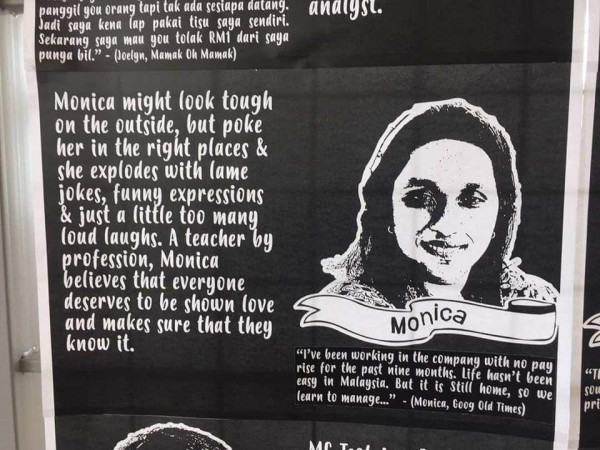 panggil you orang tapi tak ada sesiapa datang.
Jadi saya kena lap pakai tisu saya sendiri.
Sekarang saya mau you tolak RM1 dari saya
punya bil." - (Joelyn, Mamak Oh Mamak)
analyst.
Monica might look tough
on the outside, but poke
her in the right places &
she explodes with lame
jokes, funny expressions
& just a little too many
loud laughs. A teacher by
profession, Monica
believes that everyone
deserves to be shown love
and makes sure that they
know it.
Monica
"I've been working in the company with no pay
rise for the past nine months. Life hasn't been
easy in Malaysia. But it is Still home, so we
learn to manage..." - (Monica, Goog Old Times)